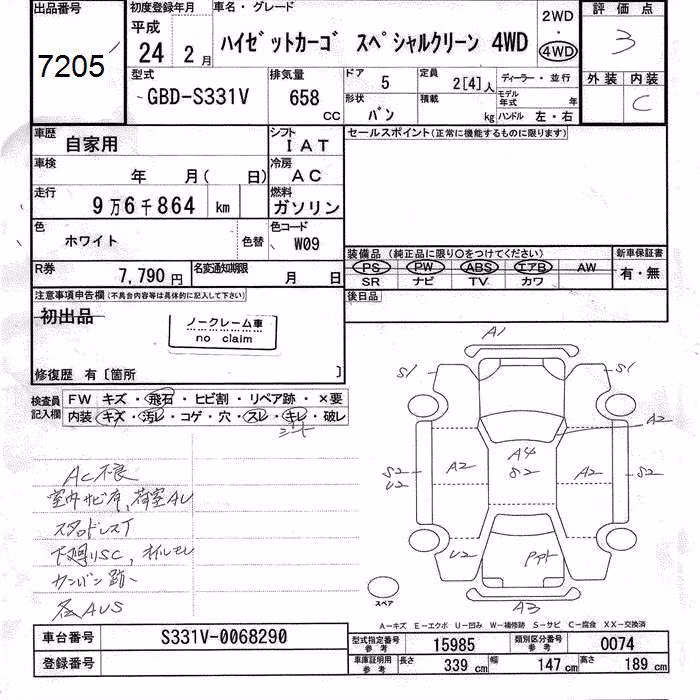 出品番号
7205
初度登録年月
平成
24 2 月
車名・グレード
ハイゼットカーゴ スペシャルクリーン 4WD
2WD
・
4WD
評価点
3
外装 内装
C
型式
GBD-S331V
排気量
658
CC
ドア
5
定員
2[4]人
ディーラー・並行
形状
バン
積載
kg
モデル年式 年
ハンドル 左・右
車歴
自家用
シフト
IAT
セールスポイント(正常に機能するものに限ります)
車検
年 月( 日)
冷房
AC
走行
9万6千864 km
燃料
ガソリン
色
ホワイト
色替
色コード
W09
装備品 (純正品に限り○をつけてください)
新車保証書
PS PW ABS エアB AW
有・無
SR ナビ TV カワ
R券
7,790円
名変通知期限
月 日
後日品
注意事項申告欄(不具合内容等は具体的に記入して下さい)
初出品
ノークレーム車
no claim
修復歴 有〔箇所 〕
検査員
記入欄
FW キズ・飛石・ヒビ割・リペア跡・×要
内装・キズ・汚レ・コゲ・穴・スレ・キレ・破レ
シート
AC不良
室内サビ有、荷室AU
スタッドレスT
下廻りSC、オイルモレ
カンバン跡、
各AUS
A1
S1 S1
A2
A4
S2
S2
U2
A2
A2
S2
U2
A3
スペア
A−キズ E−エクボ U−凹み W−補修跡 S−サビ C−腐食 XX−交換済
車台番号
S331V-0068290
登録番号
型式指定番号
参考
15985
類別区分番号
参考
0074
車庫証明用
参考
長さ 339 cm 幅 147 cm 高さ 189 cm